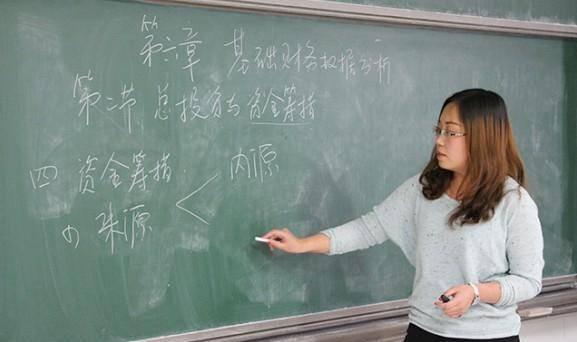 第六章 基础财务数据分析
第二节 总投资与资金筹措
四 资金筹措
内源
来源